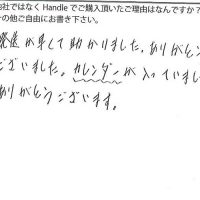 社ではなく Handle でご購入頂いたご理由はなんですか?
の他ご自由にお書き下さい。
が早くて助かりました。ありがとう
ございました。カレンダーが入っていまし
ありがとうございます。